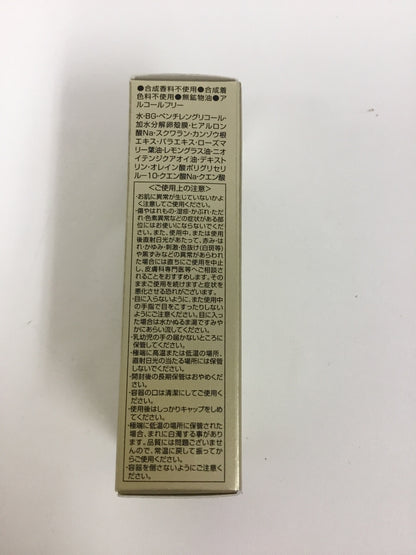 ●合成香料不使用●合成着
色料不使用●無鉱物油●ア
ルコールフリー
水･BG･ペンチレングリコール･
加水分解卵殻膜･ヒアルロン
酸Na･スクワラン･カンゾウ根
エキス･バラエキス･ローズマ
リー葉油･レモングラス油･ニオ
イテンジクアオイ油･デキスト
リン･オレイン酸ポリグリセリ
ル-10･クエン酸Na･クエン酸
<ご使用上の注意>
･お肌に異常が生じていないかよ
く注意してご使用ください。
･傷やはれもの･湿疹･かぶれ･ただ
れ･色素異常などの症状がある部
位にはお使いにならないでくださ
い。また、使用中、または使用
後直射日光があたって、赤み･は
れ･かゆみ･刺激･色抜け(白斑等)
や黒ずみなどの異常があらわれ
た場合には直ちにご使用を中止
し、皮膚科専門医等へご相談され
ることをおすすめします。その
ままご使用を続けますと症状を
悪化させる恐れがございます。
･目に入らないように、また使用中
の手指で目をこすったりしない
ようにご注意ください。目に入っ
た場合は水かぬるま湯ですみや
かにあらい流してください。
･乳幼児の手の届かないところに
保管してください。
･極端に高温または低温の場所、
直射日光の当たる場所には保管
しないでください。
･開封後の長期保管はおやめくだ
さい。
･容器の口は清潔にしてご使用く
ださい。
･使用後はしっかりキャップをしめ
てください。
･極端に低温の場所に保管された
場合、まれに白濁する事があり
ます。品質には問題ございませ
んので、常温に戻して振ってか
らご使用ください。
･容器を倒さないようにご注意く
ださい。